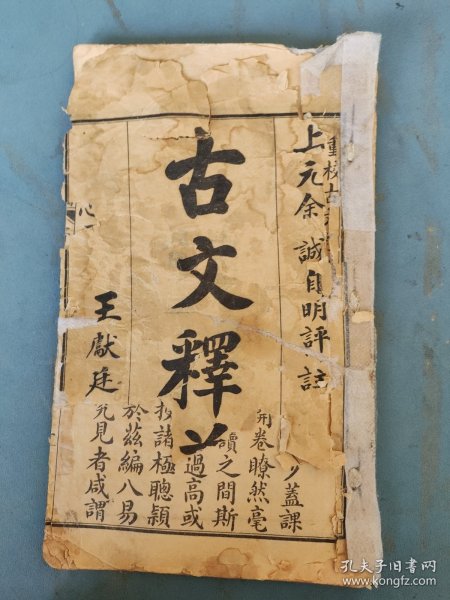 重校古文
上元余 誠自明評註
古文釋
王獻廷
蓋課
開卷瞭然毫
讀之間斯
過高或
諸極聰穎
於茲編八易
見者咸謂
孔夫子旧书网
www.kongfz.com